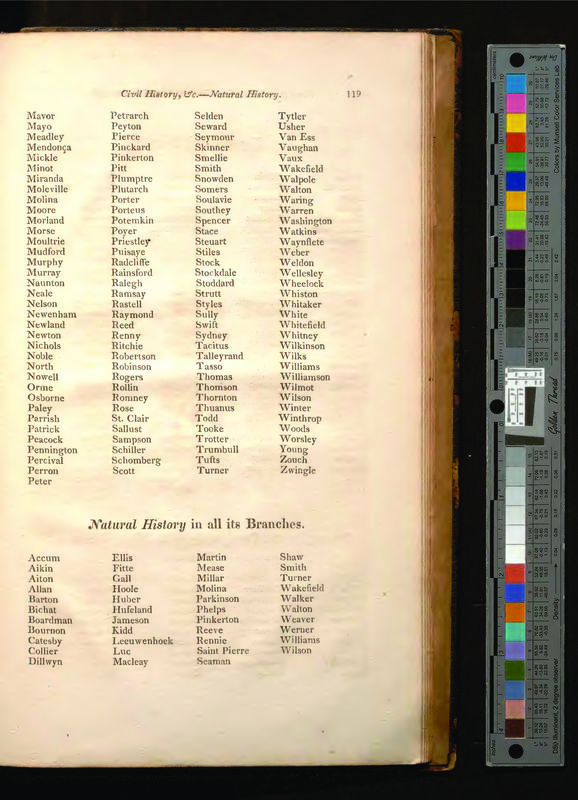 Civil History, &c.—Natural History. 119
Mavor Petrarch Selden Tytler
Mayo Peyton Seward Usher
Meadley Pierce Seymour Van Ess
Mendonça Pinckard Skinner Vaughan
Mickle Pinkerton Smellie Vaux
Minot Pitt Smith Wakefield
Miranda Plumptre Snowden Walpole
Moleville Plutarch Somers Walton
Molina Porter Soulavie Waring
Moore Porteus Southey Warren
Morland Potemkin Spencer Washington
Morse Poyer Stace Watkins
Moultrie Priestley Steuart Waynflete
Mudford Puisaye Stiles Weber
Murphy Radcliffe Stock Weldon
Murray Rainsford Stockdale Wellesley
Naunton Ralegh Stoddard Wheelock
Neale Ramsay Strutt Whiston
Nelson Rastell Styles Whitaker
Newenham Raymond Sully White
Newland Reed Swift Whitefield
Newton Renny Sydney Whitney
Nichols Ritchie Tacitus Wilkinson
Noble Robertson Talleyrand Wilks
North Robinson Tasso Williams
Nowell Rogers Thomas Williamson
Orme Rollin Thomson Wilmot
Osborne Romney Thornton Wilson
Paley Rose Thuanus Winter
Parrish St. Clair Todd Winthrop
Patrick Sallust Tooke Woods
Peacock Sampson Trotter Worsley
Pennington Schiller Trumbull Young
Percival Schomberg Tufts Zouch
Perron Scott Turner Zwingle
Peter
Natural History in all its Branches.
Accum Ellis Martin Shaw
Aikin Fitte Mease Smith
Aiton Gall Millar Turner
Allan Hoole Molina Wakefield
Barton Huber Parkinson Walker
Bichat Hufeland Phelps Walton
Boardman Jameson Pinkerton Weaver
Bournon Kidd Reeve Werner
Catesby Leeuwenhoek Rennie Williams
Collier Luc Saint Pierre Wilson
Dillwyn Macleay Seaman
Colors by Munsell Color Services Lab
Golden Thread
Density
D50 Illuminant, 2 degree observer
inches